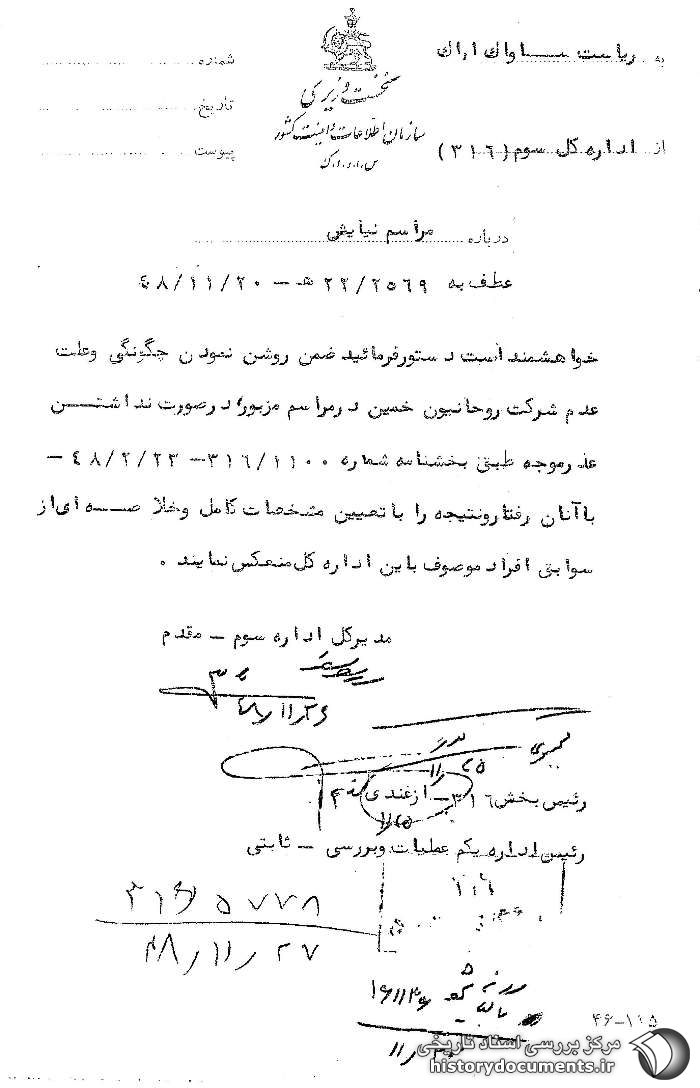 به ریاست ساواك اراك
از اداره کل سوم (۳۱٦)
نخست وزیری
سازمان اطلاعات و امنیت کشور
س.ا.و.ا.ک
شماره
تاریخ
پیوست
درباره مراسم نیایش
عطف به ۲۲/۲۵٦۹ ه‍ - ٤۸/۱۱/۲۰
خواهشمند است دستورفرمائید ضمن روشن نمودن چگونگی وعلت
عدم شرکت روحانیون خمین درمراسم مزبور، درصورت نداشتن
عذرموجه طبق بخشنامه شماره ۳۱٦/۱۱۰۰ - ٤۸/۲/۲۳ -
باآنان رفتارونتیجه را باتعیین مشخصات کامل وخلاصه ای از
سوابق افراد موصوف باین اداره کل منعکس نمایند .
مدیرکل اداره سوم - مقدم
۴۸/۱۱/۲۶
رئیس بخش ۳۱٦ - ازغندی
رئیس اداره یکم عملیات وبررسی - ثابتی
۳۱۶/۵۷۷۸
۴۸/۱۱/۲۷
۴۶-۱۱۵
مرکز بررسی اسناد تاریخی
historydocuments.ir